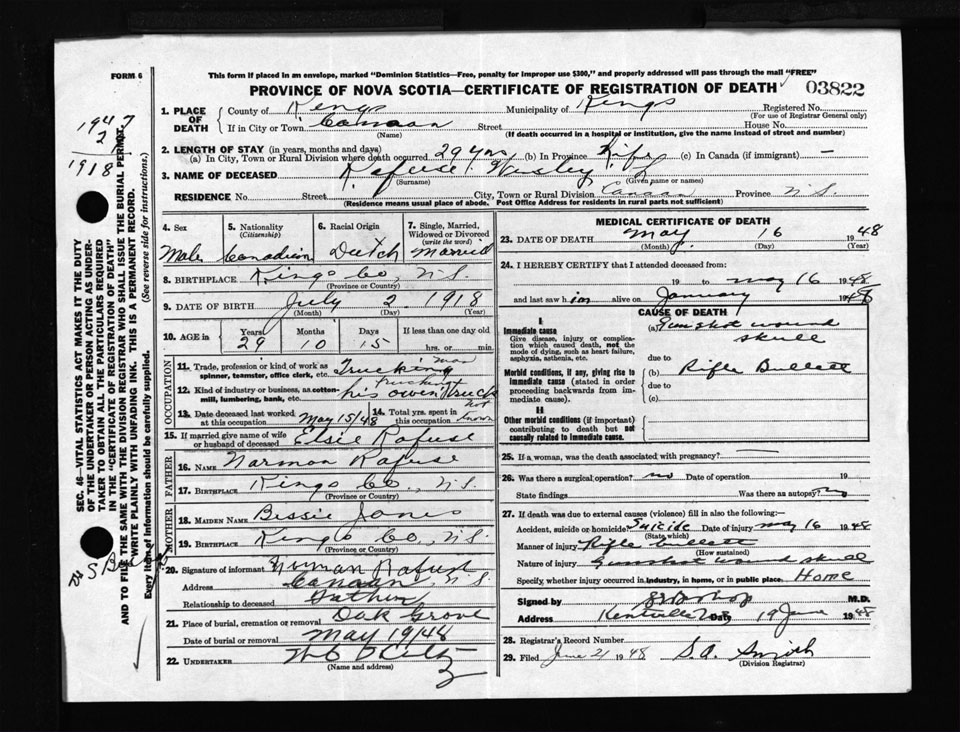 FORM 6
This form if placed in an envelope, marked "Dominion Statistics—Free, penalty for improper use $300," and properly addressed will pass through the mail "FREE"
PROVINCE OF NOVA SCOTIA—CERTIFICATE OF REGISTRATION OF DEATH 03822
1. PLACE OF DEATH County of Kings Municipality of Kings Registered No.
(For use of Registrar General only)
If in City or Town Canaan Street House No.
(Name) (If death occurred in a hospital or institution, give the name instead of street and number)
2. LENGTH OF STAY (in years, months and days)
(a) In City, Town or Rural Division where death occurred 29 yrs (b) In Province Life (c) In Canada (if immigrant) —
3. NAME OF DECEASED Rafuse
(Surname) (Given name or names)
RESIDENCE No. Street City, Town or Rural Division Canaan Province N.S.
(Residence means usual place of abode. Post Office Address for residents in rural parts not sufficient)
4. Sex 5. Nationality (Citizenship) 6. Racial Origin 7. Single, Married, Widowed or Divorced (write the word)
Male Canadian Dutch Married
8. BIRTHPLACE Kings Co, N.S.
(Province or Country)
9. DATE OF BIRTH July 2 1918
(Month) (Day) (Year)
10. AGE in Years Months Days If less than one day old
29 10 15 hrs. or min.
OCCUPATION
11. Trade, profession or kind of work as spinner, teamster, office clerk, etc. Trucking man
12. Kind of industry or business, as cotton-mill, lumbering, bank, etc. trucking his own truck
13. Date deceased last worked at this occupation May 15/48 14. Total yrs. spent in this occupation not known
15. If married give name of wife or husband of deceased Elsie Rafuse
FATHER
16. NAME Norman Rafuse
17. BIRTHPLACE Kings Co., N.S.
(Province or Country)
MOTHER
18. MAIDEN NAME Bessie Jones
19. BIRTHPLACE Kings Co., N.S.
(Province or Country)
20. Signature of informant Norman Rafuse
Address Canaan, N.S.
Relationship to deceased Father
21. Place of burial, cremation or removal Oak Grove
Date of burial or removal May 19/48
22. UNDERTAKER
(Name and address)
MEDICAL CERTIFICATE OF DEATH
23. DATE OF DEATH May 16 1948
(Month) (Day) (Year)
24. I HEREBY CERTIFY that I attended deceased from:
19 to May 16 1948
and last saw him alive on January 1948
CAUSE OF DEATH
I
Immediate cause
Give disease, injury or complication which caused death, not the mode of dying, such as heart failure, asphyxia, asthenia, etc.
(a) Gunshot wound skull
due to
Morbid conditions, if any, giving rise to immediate cause (stated in order proceeding backwards from immediate cause).
(b) Rifle Bullett
due to
(c)
II
Other morbid conditions (if important) contributing to death but not causally related to immediate cause.
25. If a woman, was the death associated with pregnancy? —
26. Was there a surgical operation? no Date of operation 19
State findings Was there an autopsy? no
27. If death was due to external causes (violence) fill in also the following:
Accident, suicide or homicide? Suicide Date of injury May 16 1948
(State which)
Manner of injury Rifle bullett
(How sustained)
Nature of injury Gunshot wound skull
Specify, whether injury occurred in industry, in home, or in public place. Home
Signed by M.D.
Address Kentville N.S. Date 19 June 1948
28. Registrar's Record Number
29. Filed June 21 1948 S.A. Smith
(Division Registrar)
1947
2
1918
SEC. 46—VITAL STATISTICS ACT MAKES IT THE DUTY
OF THE UNDERTAKER OR PERSON ACTING AS UNDER-
TAKER TO OBTAIN ALL THE PARTICULARS REQUIRED
IN THE "CERTIFICATE OF REGISTRATION OF DEATH"
AND TO FILE THE SAME WITH THE DIVISION REGISTRAR WHO SHALL ISSUE THE BURIAL PERMIT.
WRITE PLAINLY WITH UNFADING INK. THIS IS A PERMANENT RECORD.
Every item of information should be carefully supplied. (See reverse side for instructions.)